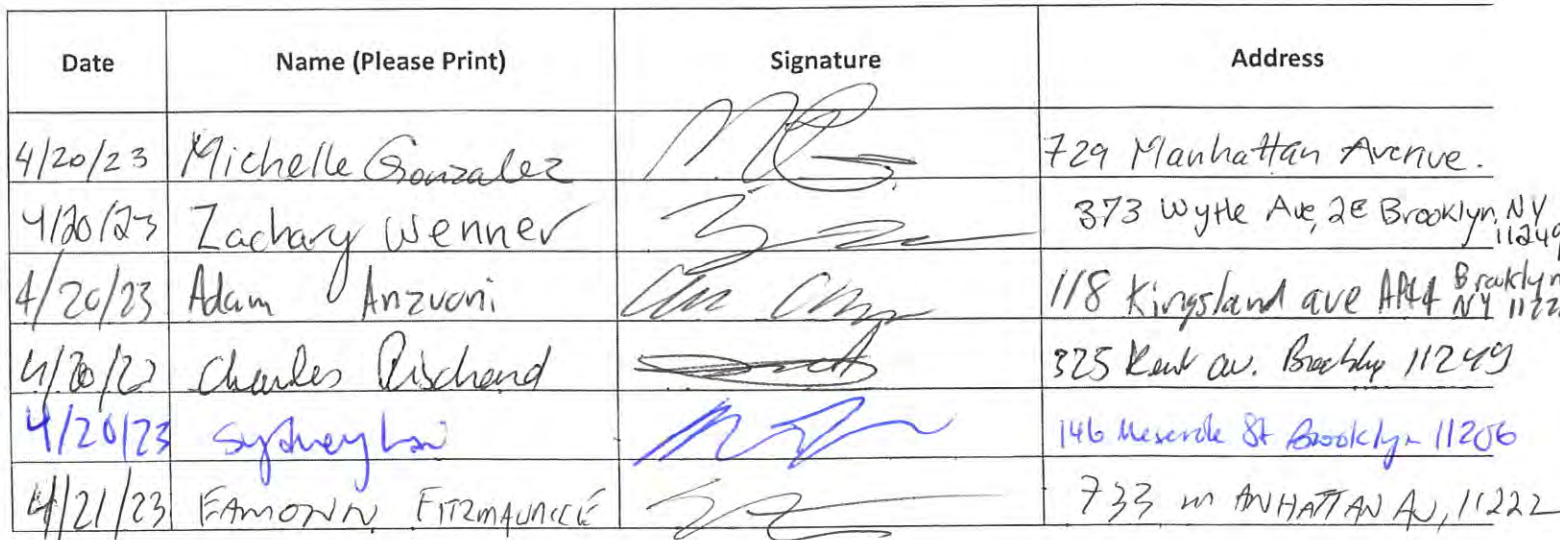 Date Name (Please Print) Signature Address
4/20/23 Michelle Gonzalez 729 Manhattan Avenue.
4/20/23 Zachary Wenner 373 Wythe Ave, 2E Brooklyn, NY 11249
4/20/23 Adam Anzuoni 118 Kingsland ave Apt 4 Brooklyn NY 1122
4/20/22 Charles 325 Kent av. Brooklyn 11249
4/20/23 Sydney Lai 146 Meserole St Brooklyn 11206
4/21/23 EAMONN FITZMAURICE 733 MANHATTAN AV, 11222